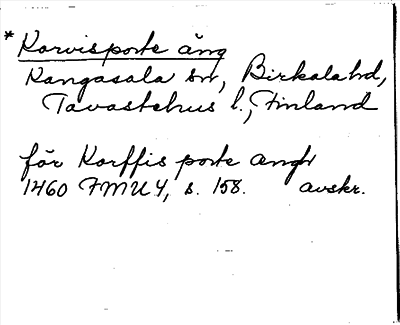 *Korvisporte äng
Kangasala sn, Birkala hd,
Tavastehus l., Finland
för Korffis porte ængh
1460 FMU 4, s. 158. avskr.